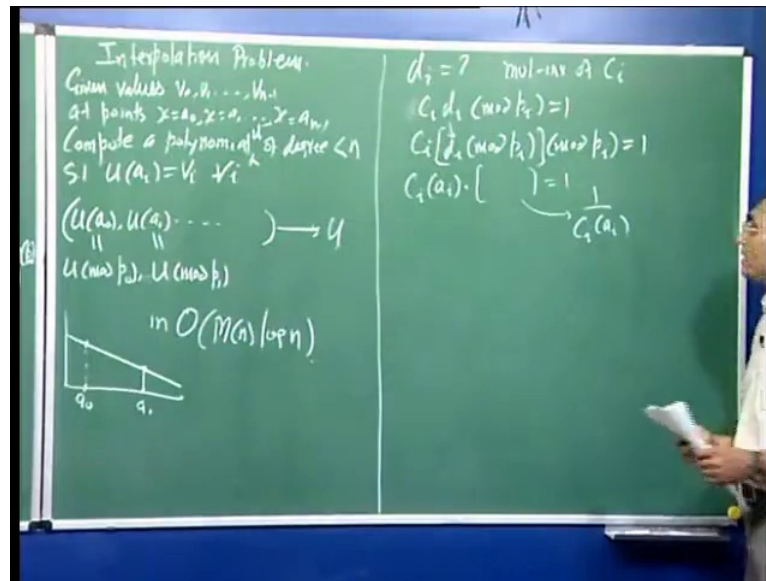 Interpolation Problem.
Given values v₀, v₁, ..., vₙ₋₁
at points x=a₀, x=a₁ ..., x=aₙ₋₁
Compute a polynomial u of degree <n
st u(aᵢ)=vᵢ ∀i
(u(a₀), u(a₁) .... ) → u
u(mod p₀), u(mod p₁)
in O(M(n) log n)
a₀ a₁
dᵢ = ? mul-inv of Cᵢ
Cᵢ dᵢ (mod pᵢ) = 1
Cᵢ[dᵢ(mod pᵢ)](mod pᵢ) = 1
Cᵢ(aᵢ)·[ ] = 1
1
Cᵢ(aᵢ)